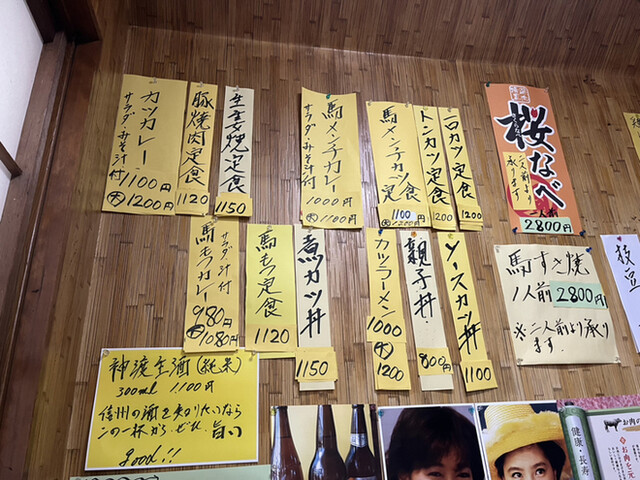 カツカレー
サラダ・みそ汁付
1100円
大 1200円
豚焼肉定食
1120
生姜焼定食
1150
馬メンチカレー
サラダ・みそ汁付
1000円
大 1100円
馬メンチカツ定食
1100
大 1200円
トンカツ定食
1200
一口カツ定食
1200
桜なべ
二人前より
承ります
一人前
2800円
馬もつカレー
サラダ・汁付
980円
大 1080円
馬もつ定食
1120
煮カツ丼
1150
カツラーメン
1000
大 1200
親子丼
800
ソースカツ丼
1100
馬すき焼
1人前 2800円
※二人前より承り
ます。
枝豆
神渡生酒(純米)
300ml 1,100円
信州の酒を知りたいなら
この一杯から、ぜひ、旨い
good!!
健康・長寿
お肉の
お肉を元